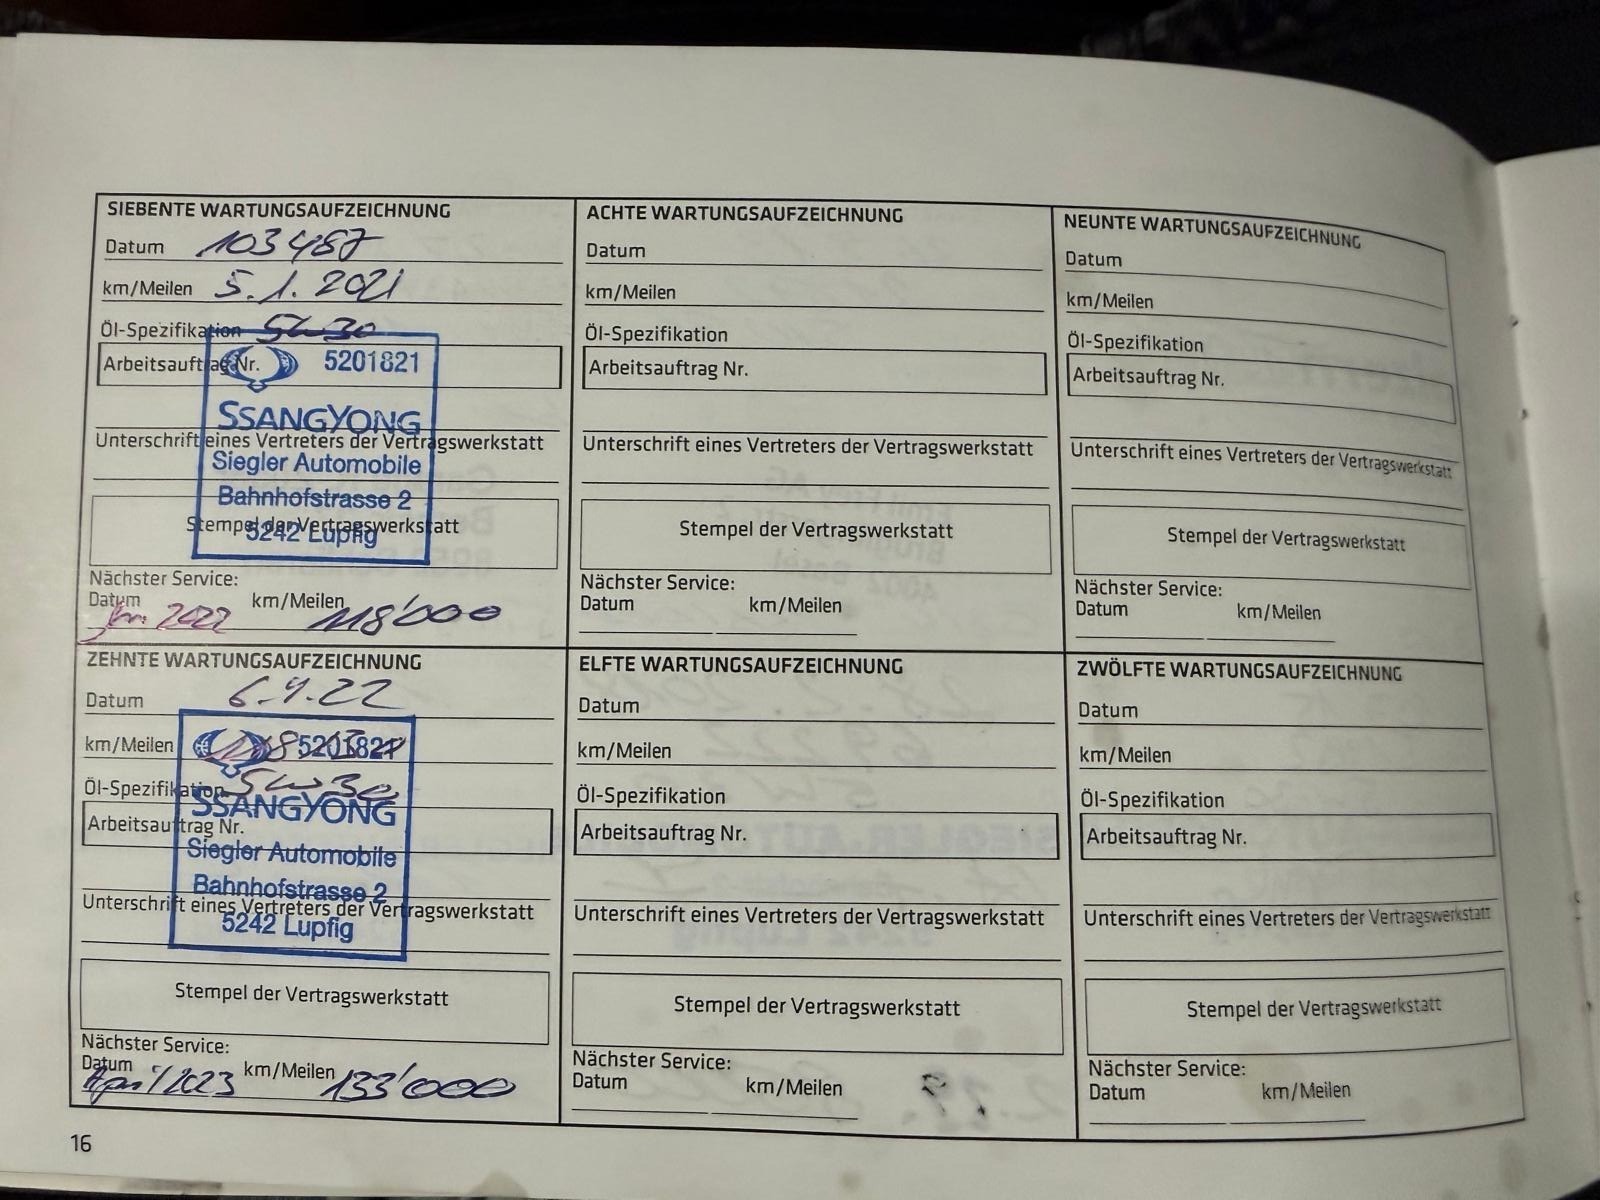 SIEBENTE WARTUNGSAUFZEICHNUNG
Datum 103487
km/Meilen 5.1.2021
Öl-Spezifikation 5w30
Arbeitsauftrag Nr.
5201821
SSANGYONG
Unterschrift eines Vertreters der Vertragswerkstatt
Siegler Automobile
Bahnhofstrasse 2
Stempel der Vertragswerkstatt
5242 Lupfig
Nächster Service:
Datum km/Meilen
Jan. 2022 118'000
ACHTE WARTUNGSAUFZEICHNUNG
Datum
km/Meilen
Öl-Spezifikation
Arbeitsauftrag Nr.
Unterschrift eines Vertreters der Vertragswerkstatt
Stempel der Vertragswerkstatt
Nächster Service:
Datum km/Meilen
NEUNTE WARTUNGSAUFZEICHNUNG
Datum
km/Meilen
Öl-Spezifikation
Arbeitsauftrag Nr.
Unterschrift eines Vertreters der Vertragswerkstatt
Stempel der Vertragswerkstatt
Nächster Service:
Datum km/Meilen
ZEHNTE WARTUNGSAUFZEICHNUNG
Datum 6.4.22
km/Meilen
5201821
Öl-Spezifikation 5w30
SSANGYONG
Arbeitsauftrag Nr.
Siegler Automobile
Bahnhofstrasse 2
Unterschrift eines Vertreters der Vertragswerkstatt
5242 Lupfig
Stempel der Vertragswerkstatt
Nächster Service:
Datum km/Meilen
April 2023 133'000
ELFTE WARTUNGSAUFZEICHNUNG
Datum
km/Meilen
Öl-Spezifikation
Arbeitsauftrag Nr.
Unterschrift eines Vertreters der Vertragswerkstatt
Stempel der Vertragswerkstatt
Nächster Service:
Datum km/Meilen
ZWÖLFTE WARTUNGSAUFZEICHNUNG
Datum
km/Meilen
Öl-Spezifikation
Arbeitsauftrag Nr.
Unterschrift eines Vertreters der Vertragswerkstatt
Stempel der Vertragswerkstatt
Nächster Service:
Datum km/Meilen
16